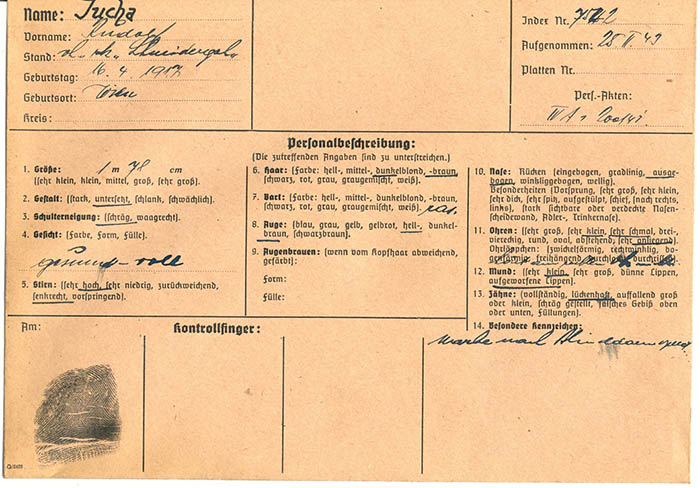 Name: Fucha
Vorname: Rudolf
Stand:
Geburtstag: 16. 4. 1917
Geburtsort: Wien
Kreis:
Index Nr. 7542
Aufgenommen: 25 II. 43
Platten Nr.
Pers.-Akten:
Personalbeschreibung:
(Die zutreffenden Angaben sind zu unterstreichen.)
1. Größe: 1 m cm
(sehr klein, klein, mittel, groß, sehr groß).
2. Gestalt: (stark, untersetzt, schlank, schwächlich).
3. Schulterneigung: (schräg, waagrecht).
4. Gesicht: (Farbe, Form, Fülle).
gesund – voll
5. Stirn: (sehr hoch, sehr niedrig, zurückweichend,
senkrecht, vorspringend).
6. Haar: (Farbe: hell-, mittel-, dunkelblond, -braun,
schwarz, rot, grau, graugemischt, weiß).
7. Bart: (Farbe: hell-, mittel-, dunkelblond, -braun,
schwarz, rot, grau, graugemischt, weiß). ras.
8. Auge: (blau, grau, gelb, gelbrot, hell-, dunkel-
braun, schwarzbraun).
9. Augenbrauen: (wenn vom Kopfhaar abweichend,
gefärbt):
Form:
Fülle:
10. Nase: Rücken (eingebogen, gradlinig, ausge-
bogen, winkliggebogen, wellig).
Besonderheiten (Vorsprung, sehr groß, sehr klein,
sehr dick, sehr spitz, aufgestülpt, schief, (nach rechts,
links), stark sichtbare oder verdeckte Nasen-
scheidewand, Adler-, Trinkernase).
11. Ohren: (sehr groß, sehr klein, sehr schmal, drei-,
viereckig, rund, oval, abstehend, sehr anliegend)
Ohrläppchen: (zwickelförmig, rechtwinklig, bo-
genförmig, freihängend, durchlocht, durchrissen).
12. Mund: (sehr klein, sehr groß, dünne Lippen,
aufgeworfene Lippen).
13. Zähne: (vollständig, lückenhaft, auffallend groß
oder klein, schräg gestellt, falsches Gebiß oben
oder unten, Füllungen).
14. Besondere Kennzeichen:
Am:
Kontrollfinger: